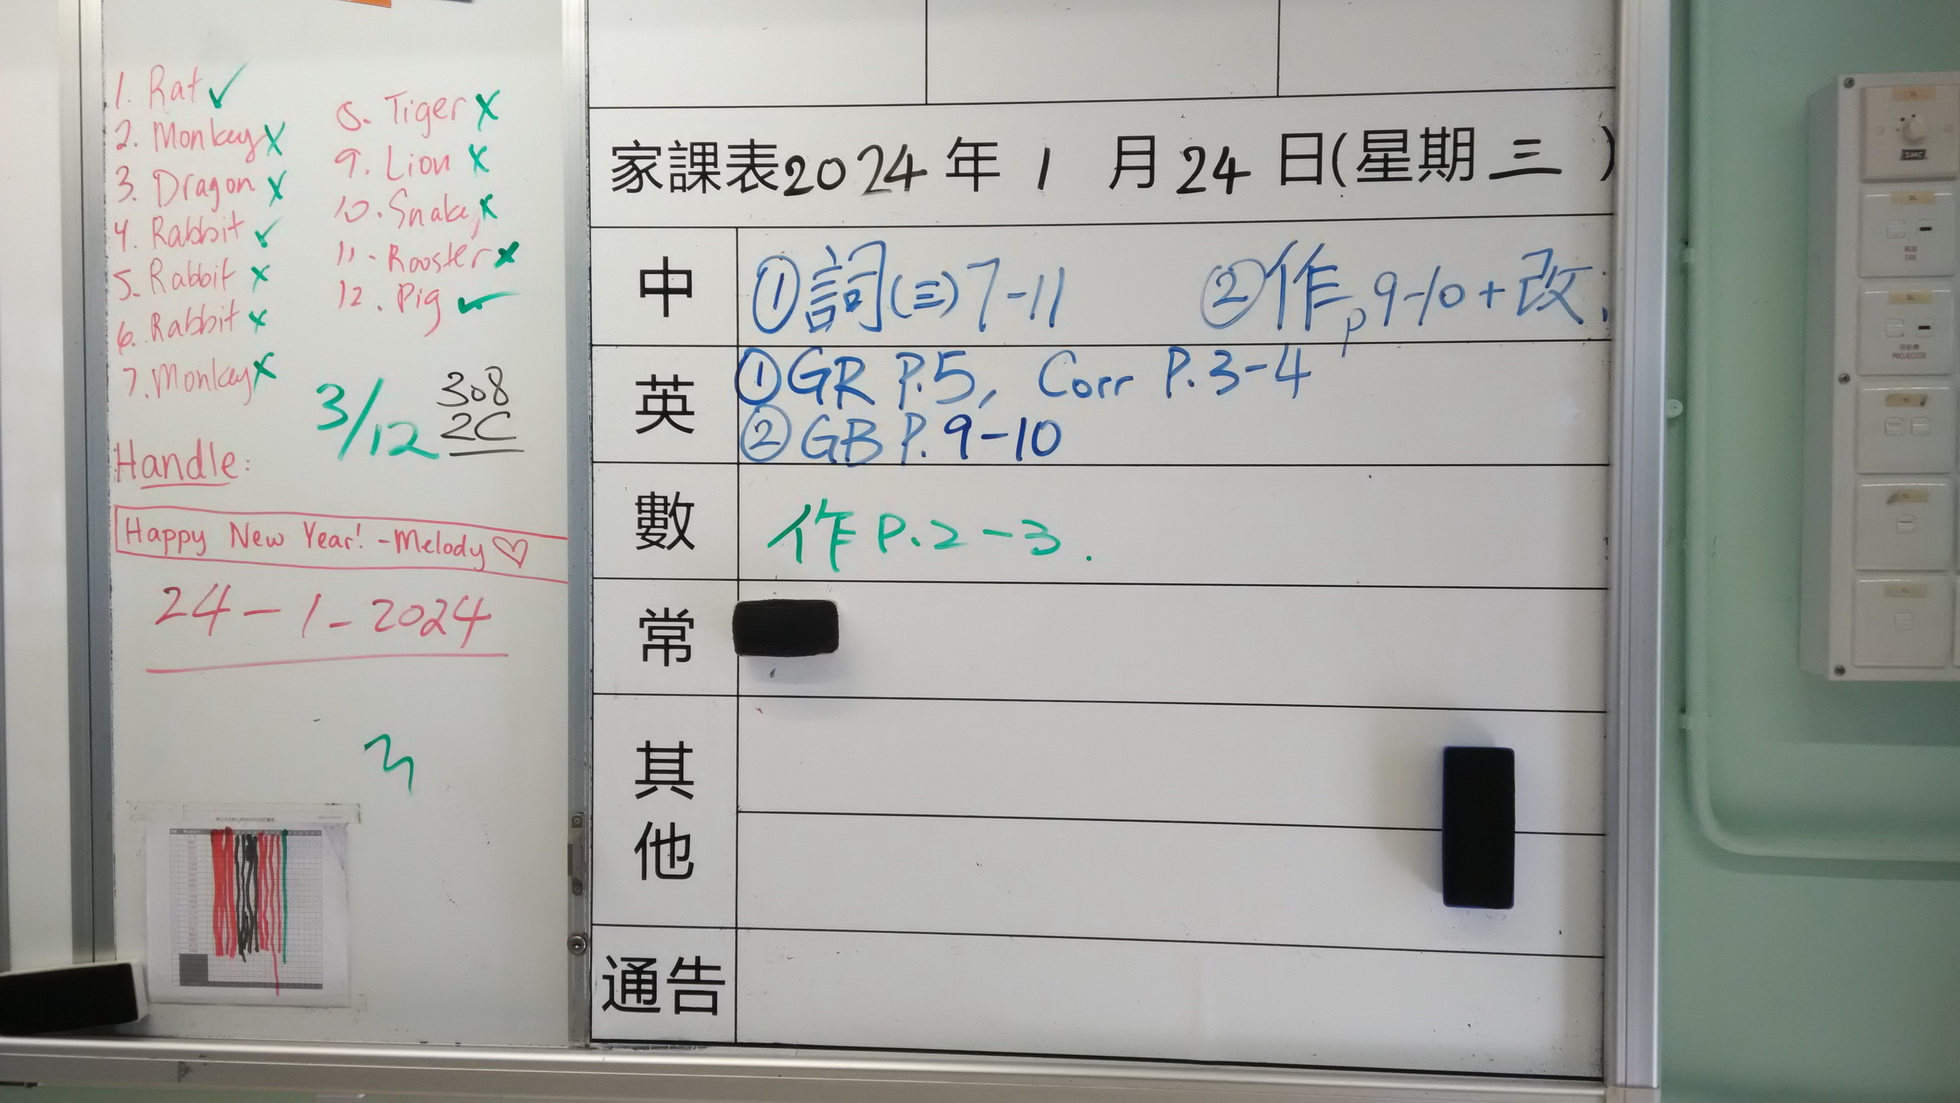 1. Rat ✓
2. Monkey x
3. Dragon x
4. Rabbit ✓
5. Rabbit x
6. Rabbit x
7. Monkey x
8. Tiger x
9. Lion x
10. Snake x
11. Rooster x
12. Pig ✓
3/12
308
2C
Handle:
Happy New Year! -Melody ♡
24-1-2024
家課表2024年 1 月 24 日(星期 三 )
中 ①詞(三)7-11 ②作p9-10+改
英 ①GR P.5, Corr P.3-4
②GB P.9-10
數 作 P.2-3.
常
其他
通告
PROJECTOR